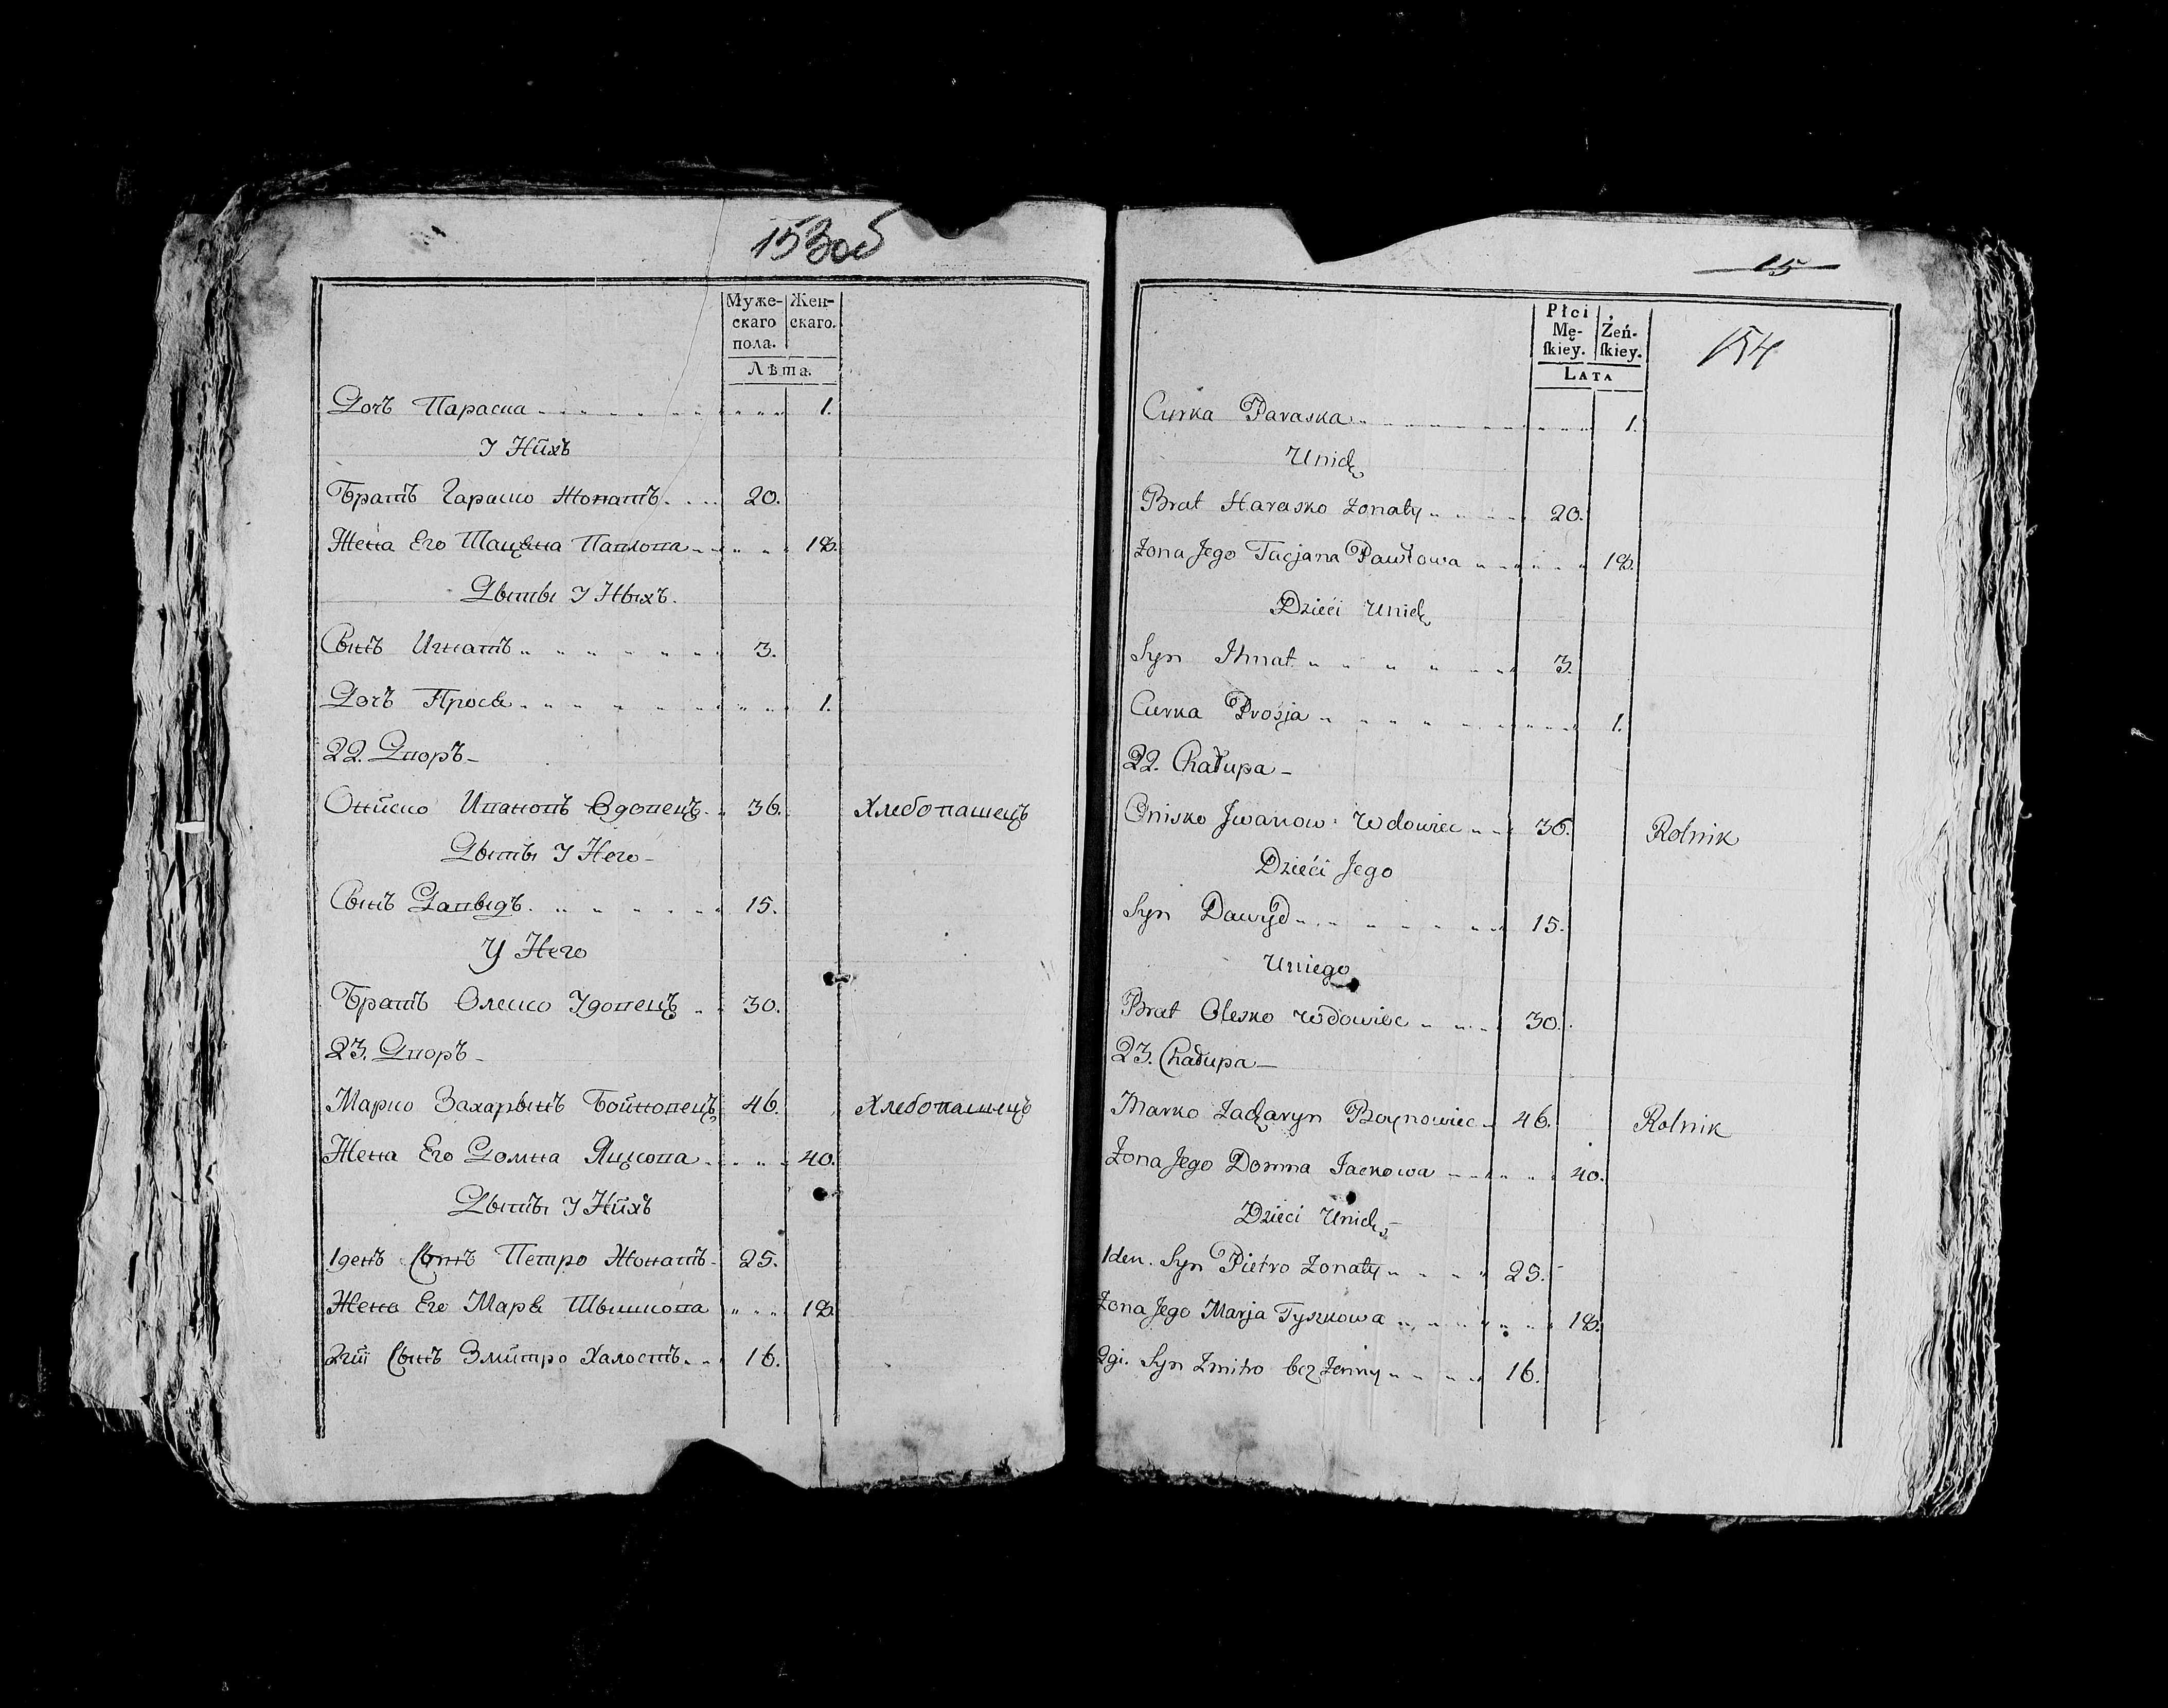 153об
Муже-
скаго
пола.
Жен-
скаго.
Лѣта.
Дочъ Параска 1.
У Нихъ
Братъ Гараско Жонатъ 20.
Жена Его Тацѣна Павлова 18.
Дыты У Ныхъ.
Сынъ Игнатъ 3.
Дочъ Просѣ 1.
22. Дворъ
Ониско Ивановъ Вдовецъ 36. Хлебопашецъ
Дыты У Него
Сынъ Давыдъ 15.
У Него
Братъ Олеско Удовецъ 30.
23. Дворъ
Марко Захарынъ Бойновецъ 46. Хлебопашецъ
Жена Его Домна Яцкова 40.
Дыты У Нихъ
1денъ Сынъ Петро Жонатъ 25.
Жена Его Марѣ Тышкова 18.
2гій Сынъ Змитро Халостъ 16.
15
154
Płci
Mę-
ſkiey.
Żeń-
ſkiey.
LATA
Curka Paraska 1.
Unich
Brat Harasko żonaty 20.
żona Jego Tacjana Pawłowa 18.
Dzieći Unich
Syn Ihnat 3.
Curka Prosja 1.
22. Chałupa
Onisko Jwanow Wdowiec 36. Rolnik
Dzieći Jego
Syn Dawyd 15.
Uniego
Brat Olesko Wdowiec 30.
23. Chałupa
Marko Zacharyn Boynowiec 46. Rolnik
Żona Jego Domna Jackowa 40.
Dzieci Unich
1den. Syn Pietro Żonaty 25.
Żona Jego Marja Tyszkowa 18.
2gi. Syn Zmitro bez żenny 16.